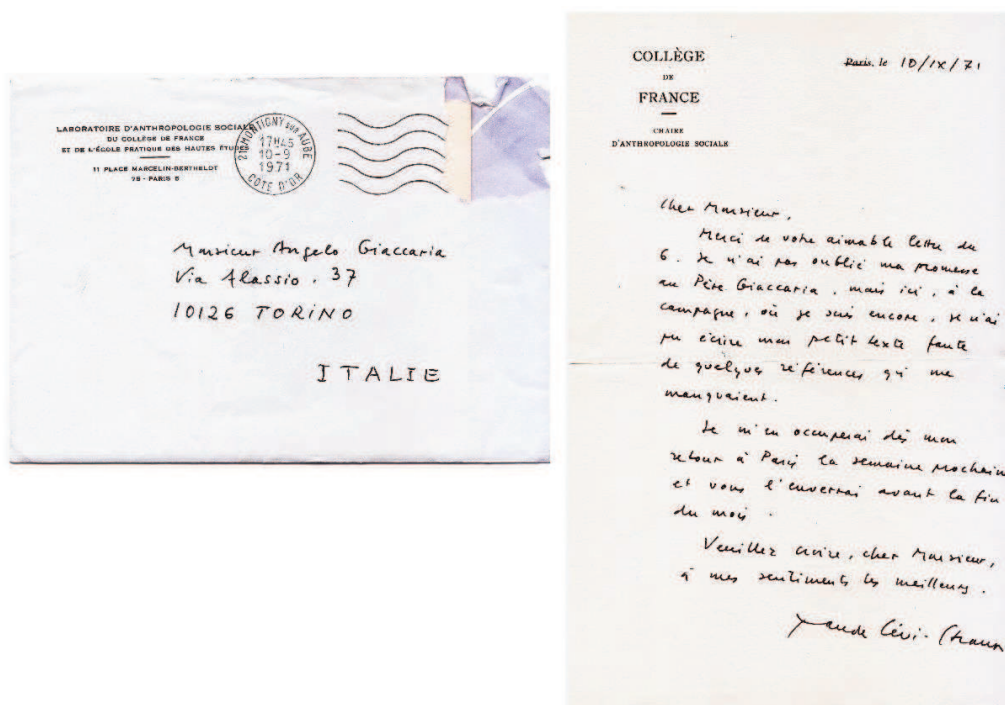 LABORATOIRE D'ANTHROPOLOGIE SOCIALE
DU COLLÈGE DE FRANCE
ET DE L'ÉCOLE PRATIQUE DES HAUTES ÉTUDES
11 PLACE MARCELIN-BERTHELOT
75 - PARIS 5
21 MONTIGNY sur AUBE
17H45
10-9
1971
COTE D'OR
Monsieur Angelo Giaccaria
Via Alassio. 37
10126 TORINO
ITALIE
COLLÈGE
DE
FRANCE
CHAIRE
D'ANTHROPOLOGIE SOCIALE
Paris, le 10/IX/71
Cher Monsieur,
Merci de votre aimable lettre du
6. Je n'ai pas oublié ma promesse
au Père Giaccaria, mais ici, à la
campagne, où je suis encore, je n'ai
pu écrire mon petit texte faute
de quelques références qui me
manquaient.
Je m'en occuperai dès mon
retour à Paris la semaine prochain
et vous l'enverrai avant la fin
du mois.
Veuillez croire, cher Monsieur,
à mes sentiments les meilleurs.
Claude Lévi-Strauss